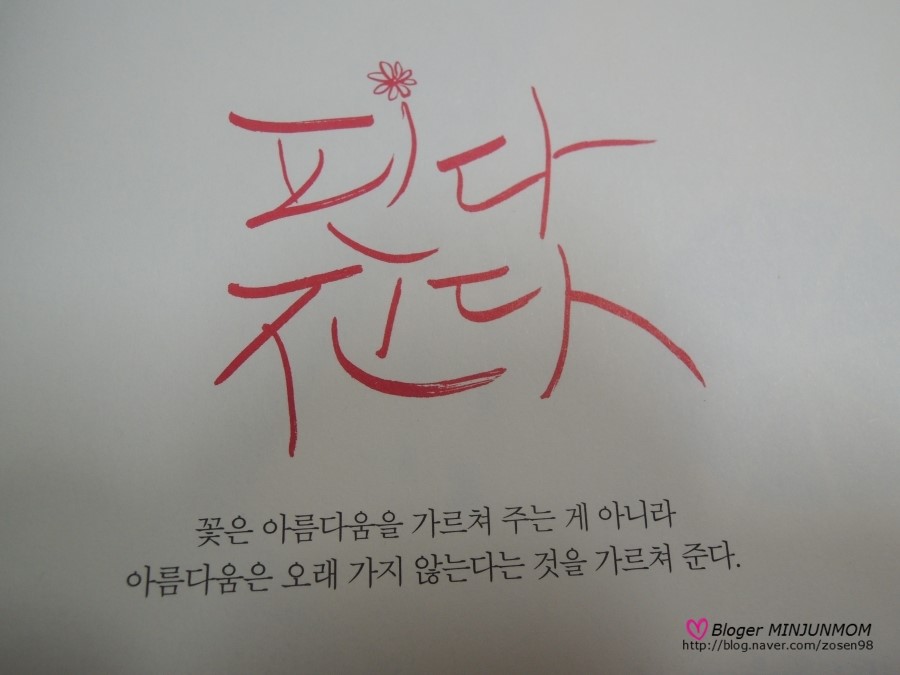 핀다
진다
꽃은 아름다움을 가르쳐 주는 게 아니라
아름다움은 오래 가지 않는다는 것을 가르쳐 준다.
Bloger MINJUNMOM
http://blog.naver.com/zosen98